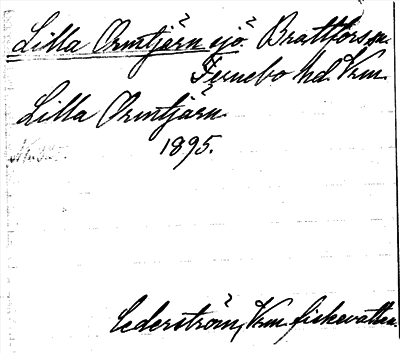 Lilla Ormtjärn sjö. Brattfors sn.
Fernebo hd. Vrm.
Lilla Ormtjärn
1895.
Cederström, Vrm. fiskevatten.